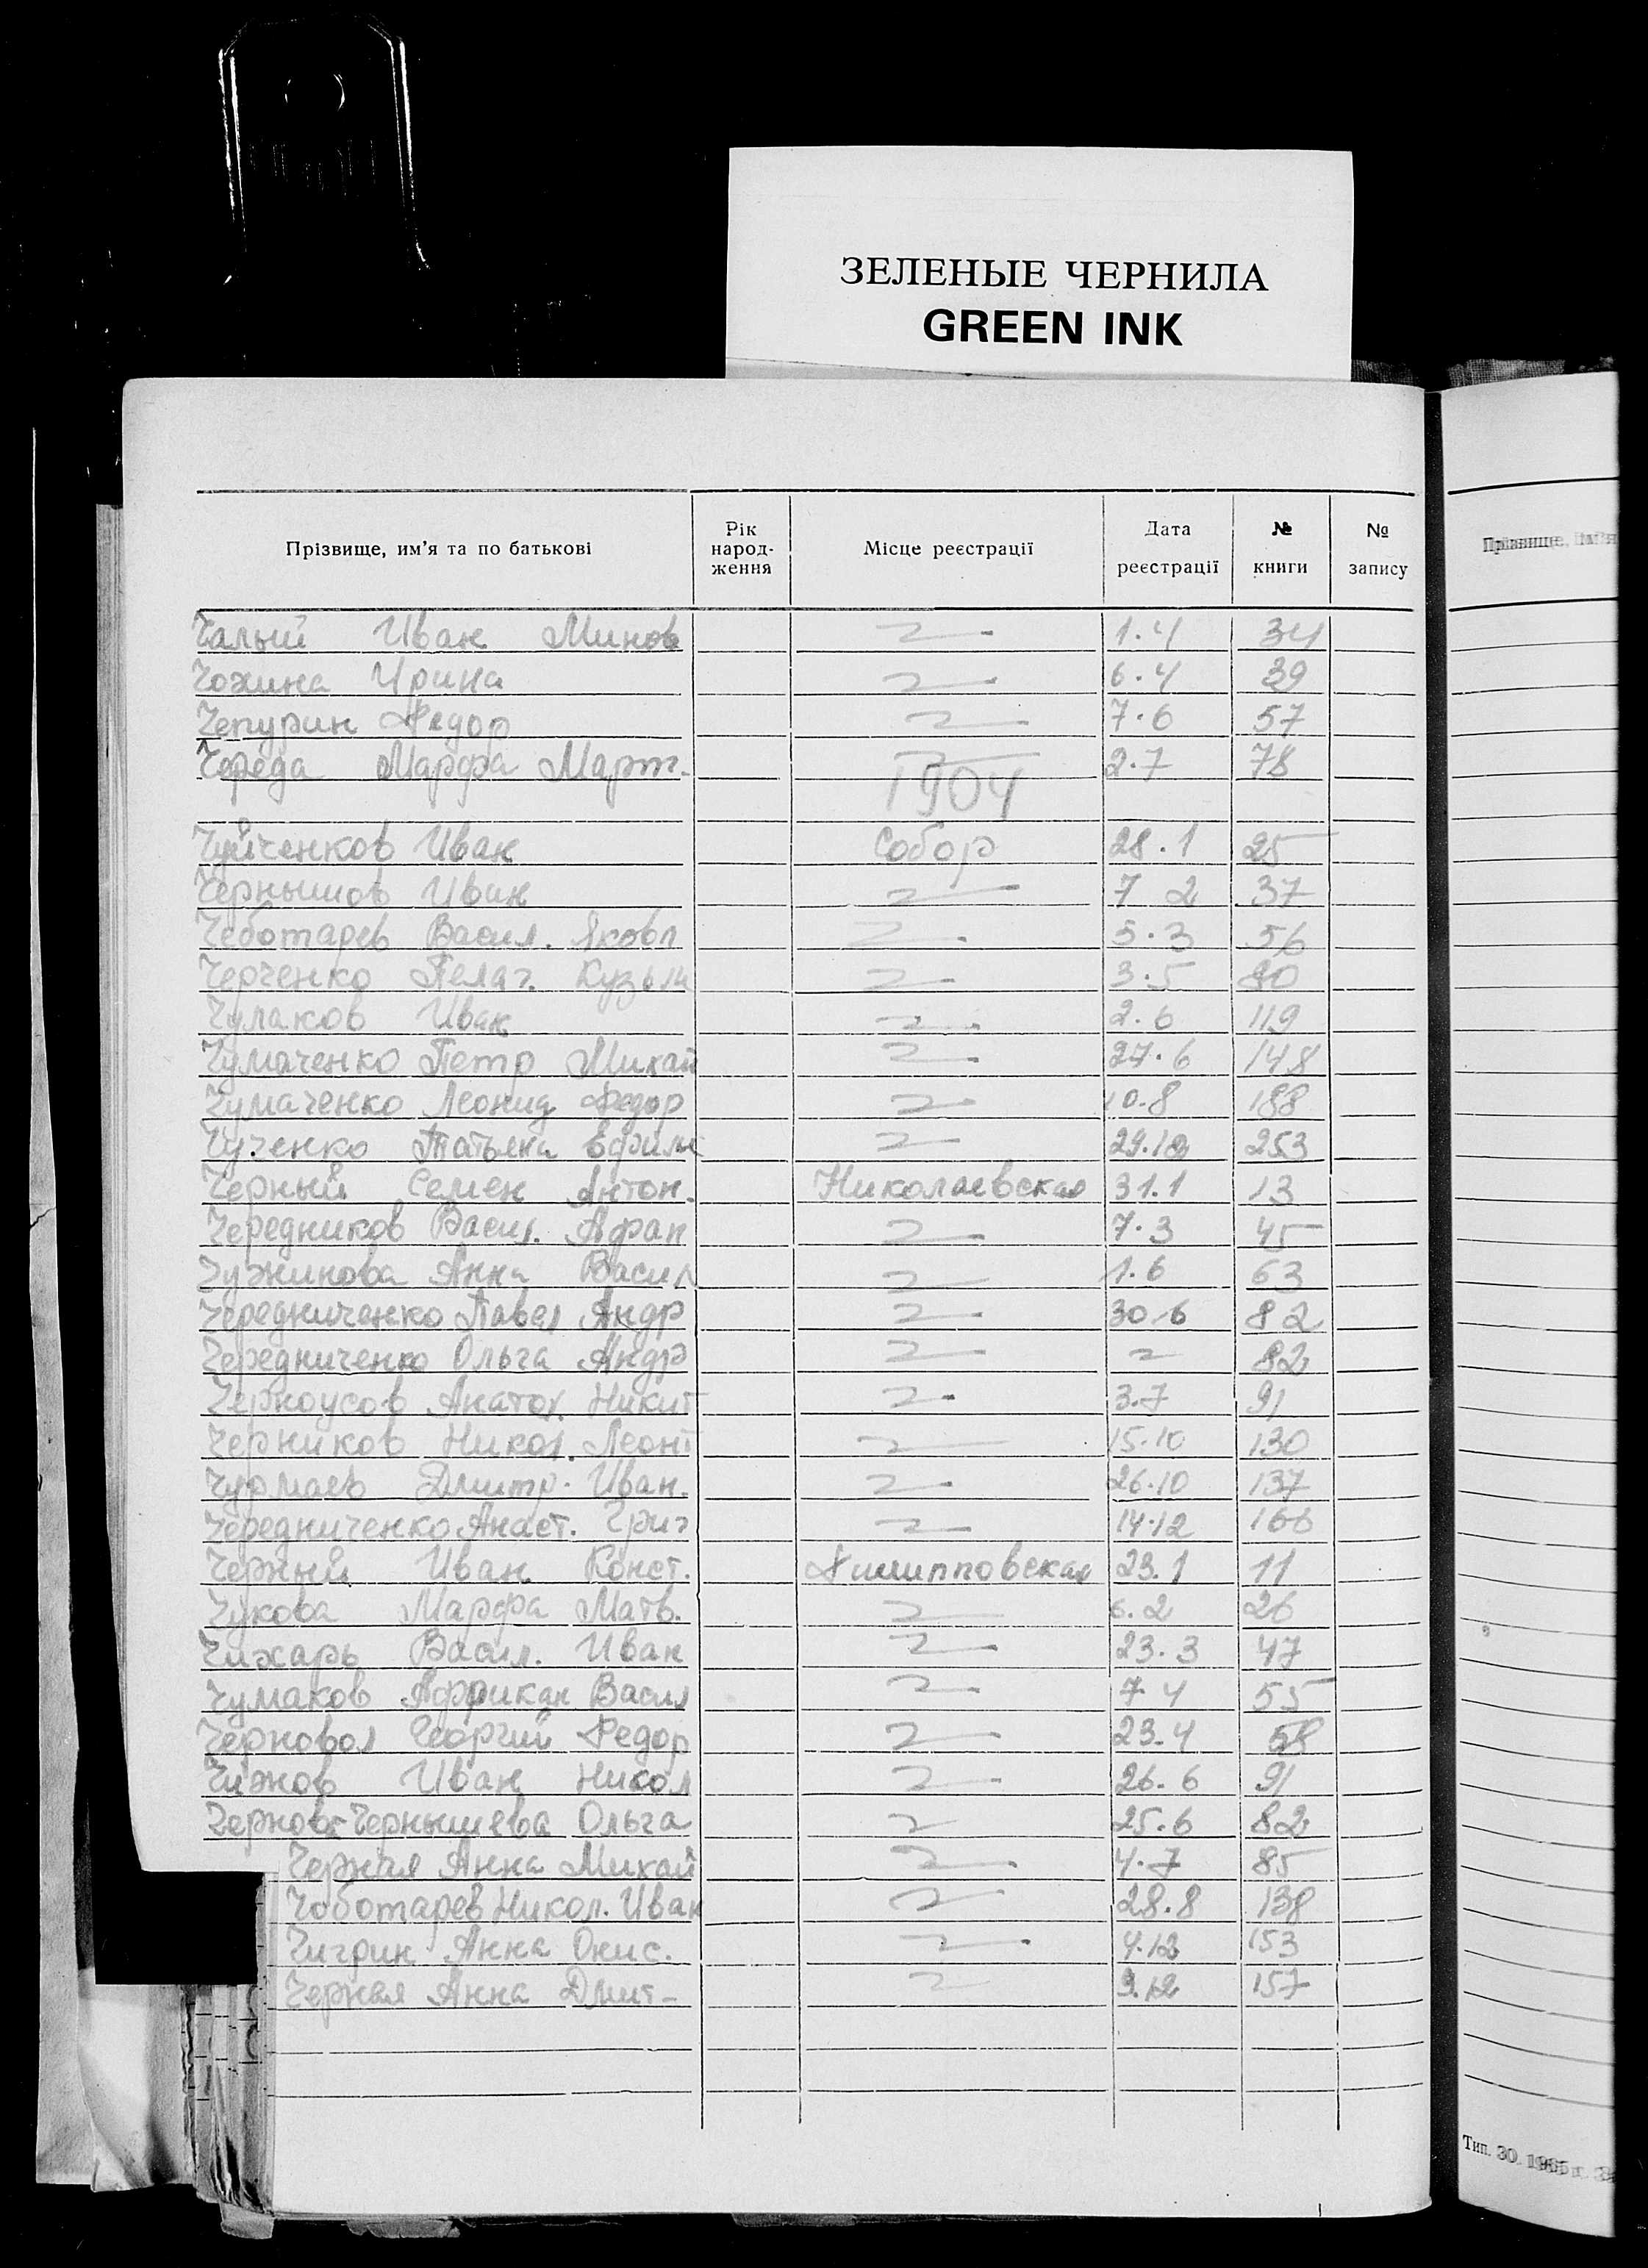 ЗЕЛЕНЫЕ ЧЕРНИЛА
GREEN INK
Прізвище, им’я та по батькові Рік народ-ження Місце реєстрації Дата реєстрації № книги № запису
Прізвище, им’я
Чалый Иван Минов 1.4 34
Чохина Ирина 6.4 39
Чепурин Федор 7.6 57
Череда Марфа Март. 2.7 78
1904
Чуйченков Иван Собор 28.1 25
Чернышов Иван 7 2 37
Чеботарев Васил. Яковл 5.3 56
Черченко Пелаг. Кузьм 3.5 90
Чулаков Иван 2.6 119
Чумаченко Петр Михай 27.6 148
Чумаченко Леонид Федор 10.8 188
Чученко Татьяна Ефим 29.12 253
Черный Семен Антон. Николаевская 31.1 13
Чередников Васил. Афан 7.3 45
Чужинова Анна Васил 1.6 63
Чередниченко Павел Андр 30.6 82
Чередниченко Ольга Андр 82
Черноусов Анатол. Никит 3.7 91
Черников Никол. Леонт 15.10 130
Чурмаев Дмитр. Иван. 26.10 137
Чередниченко Анаст. Григ 14.12 166
Черный Иван Конст. Филипповская 23.1 11
Чукова Марфа Матв. 6.2 26
Чижарь Васил. Иван 23.3 47
Чумаков Африкан Васил 7 4 55
Черновол Георгий Федор 23.4 58
Чижов Иван Никол 26.6 91
Чернова-Чернышева Ольга 25.6 82
Черная Анна Михай 4.7 85
Чоботарев Никол. Иван 28.8 138
Чигрин Анна Онис. 4.12 153
Черная Анна Дмит- 9.12 157
Тип. 30.